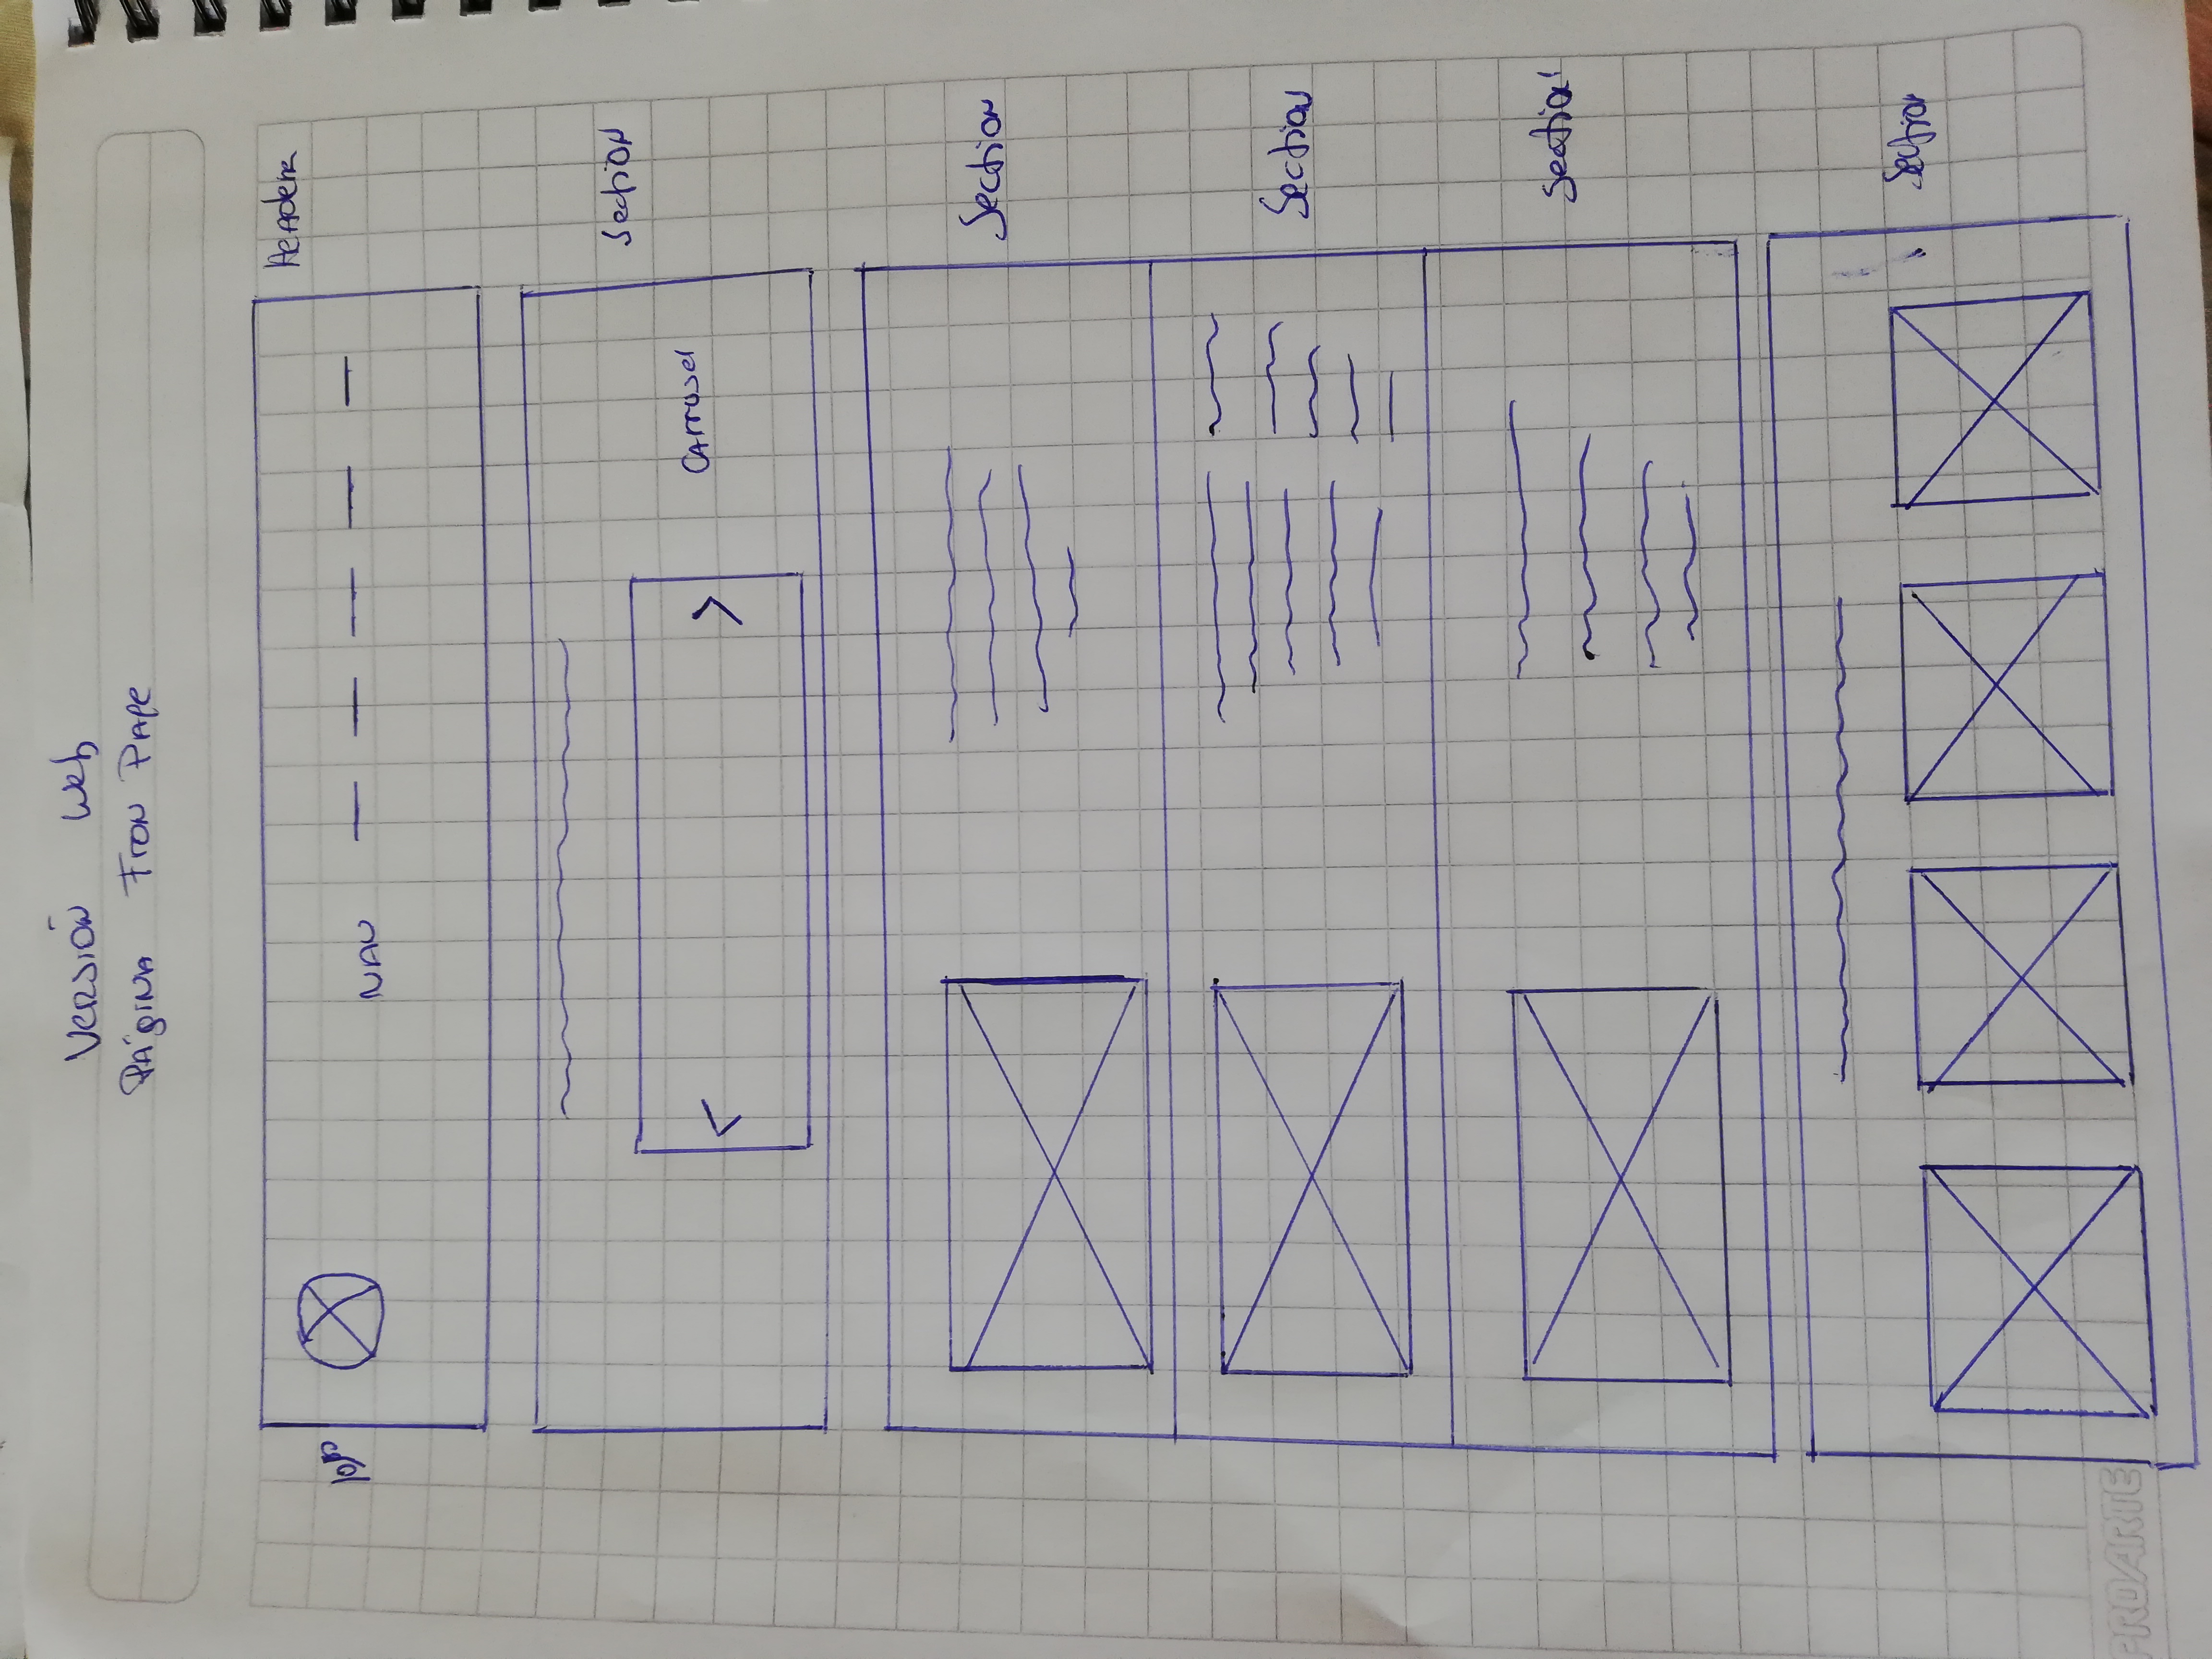 Versión Web
Página Fron Page
Header
logo
NAV
Section
Carrusel
Section
Section
Section
Section
PROARTE